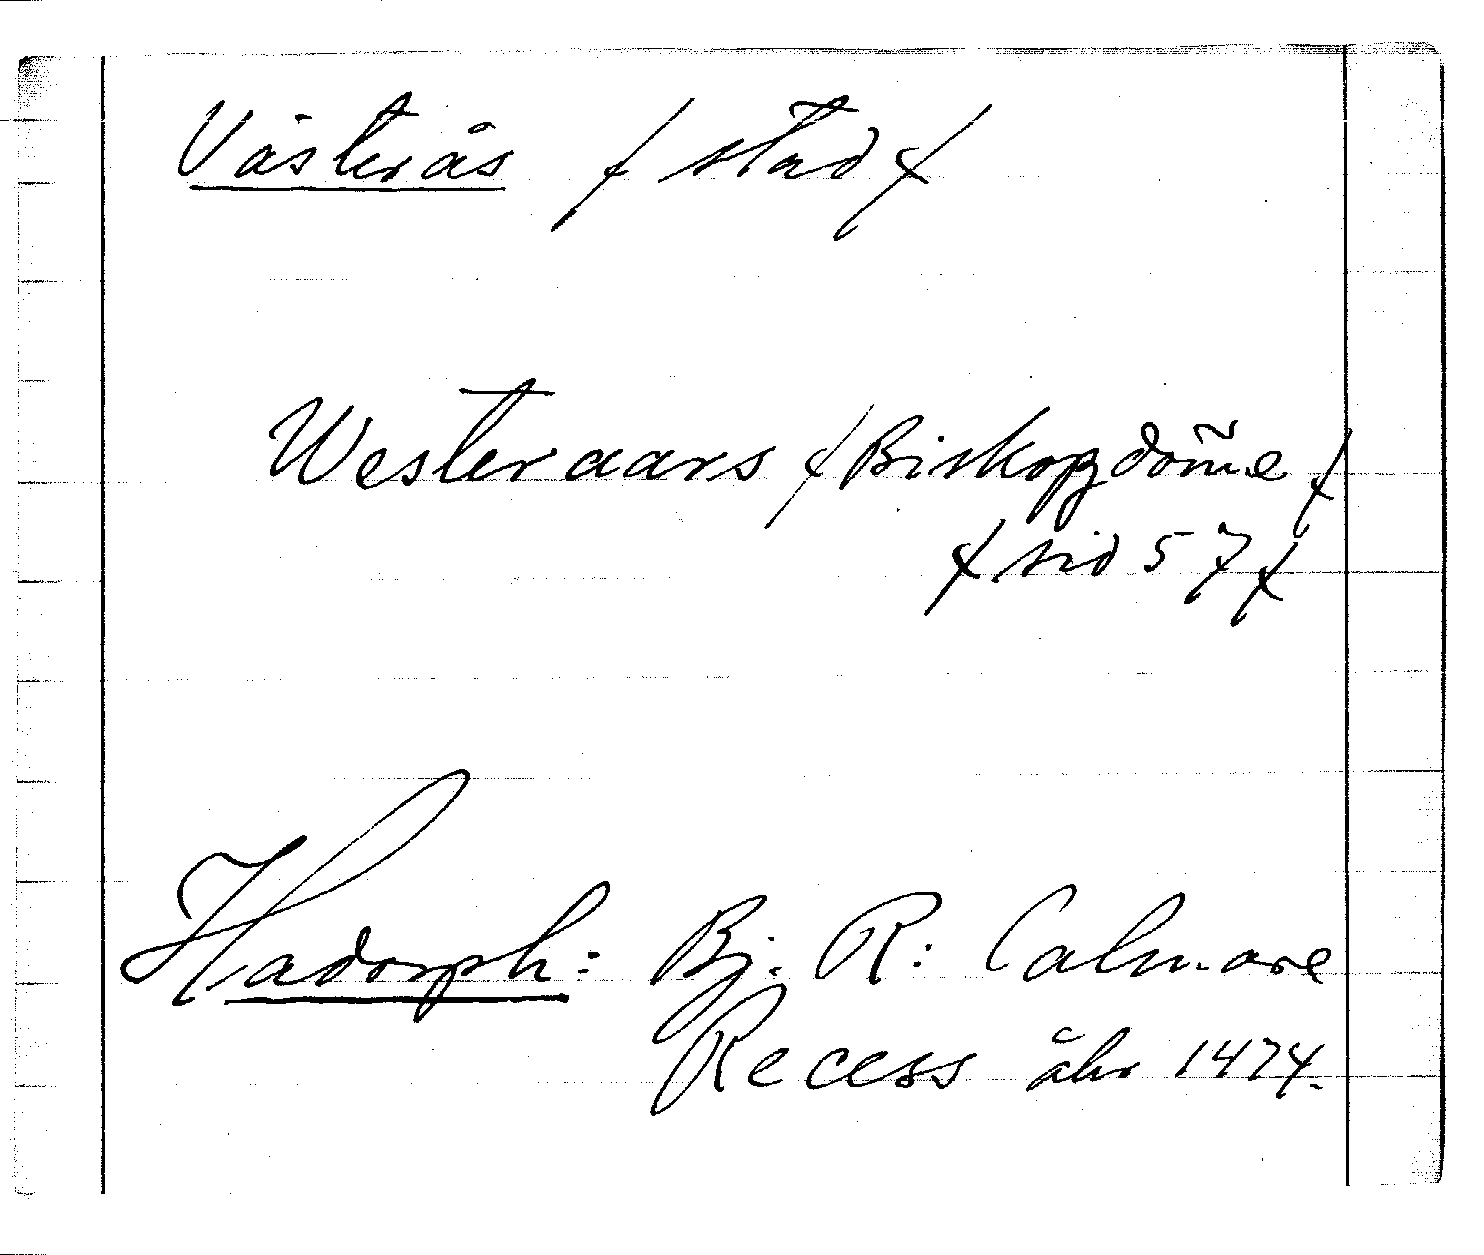 Västerås / stad /
Westeraars / Biskopzdom̃e /
/ sid 57 /
Hadorph: Bj. R: Calmare
Recess åhr 1474.